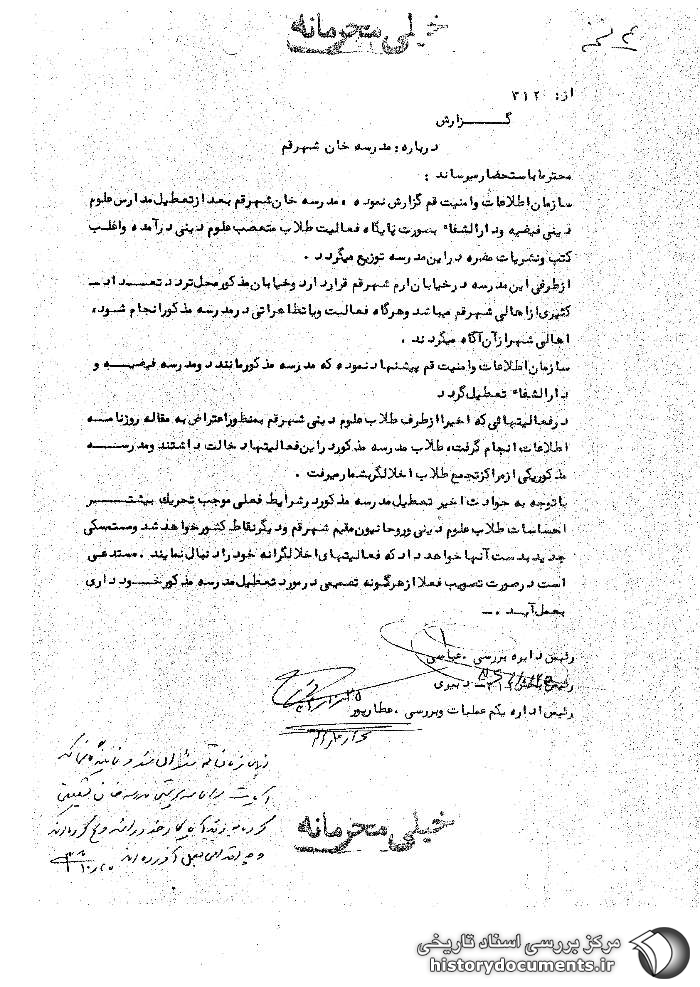 خیلی محرمانه
از: ۳۱۲
گـــــزارش
درباره: مدرسه خان شهر قم
محترما باستحضار میرساند :
سازمان اطلاعات و امنیت قم گزارش نموده ، مدرسه خان شهر قم بعد از تعطیل مدارس علوم
دینی فیضیه و دارالشفاء بصورت پایگاه فعالیت طلاب متعصب علوم دینی در آمده و اغلب
کتب و نشریات مضره در این مدرسه توزیع میگردد .
از طرفی این مدرسه در خیابان ارم شهر قم قرار دارد و خیابان مذکور محل تردد تعـــداد ـ
کثیری از اهالی شهر قم میباشد و هرگاه فعالیت و یا تظاهراتی در مدرسه مذکور انجام شود،
اهالی شهر از آن آگاه میگردند .
سازمان اطلاعات و امنیت قم پیشنهاد نموده که مدرسه مذکور مانند دو مدرسه فیضیـــه و
دارالشفاء تعطیل گردد
در فعالیتهائی که اخیرا از طرف طلاب علوم دینی شهر قم بمنظور اعتراض به مقاله روزنامـــه
اطلاعات انجام گرفت، طلاب مدرسه مذکور در این فعالیتها دخالت داشتند و مدرســـه
مذکور یکی از مراکز تجمع طلاب اخلالگر بشمار میرفت .
با توجه به حوادث اخیر تعطیل مدرسه مذکور در شرایط فعلی موجب تحریک بیشتـــــر
احساسات طلاب علوم دینی و روحانیون مقیم شهر قم و دیگر نقاط کشور خواهد شد و مستمسکی
جدید بدست آنها خواهد داد که فعالیتهای اخلالگرانه خود را دنبال نمایند . مستدعی
است در صورت تصویب فعلا از هرگونه تصمیمی در مورد تعطیل مدرسه مذکور خـــودداری
بعمل آیـــد . ـ
رئیس دایره بررسی . عباسی
رئیس بخش ۳۱۲ ـ دبیری
رئیس اداره یکم عملیات و بررسی . عطارپور
خیلی محرمانه
مرکز بررسی اسناد تاریخی
historydocuments.ir